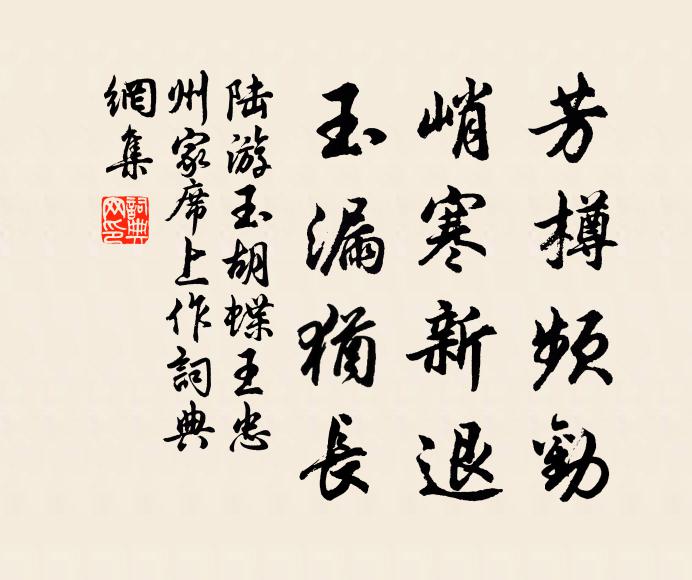 芳樽頻勸
峭寒新退
玉漏猶長
陆游玉胡蝶王忠
州家席上作詞典
網集
詞典网印